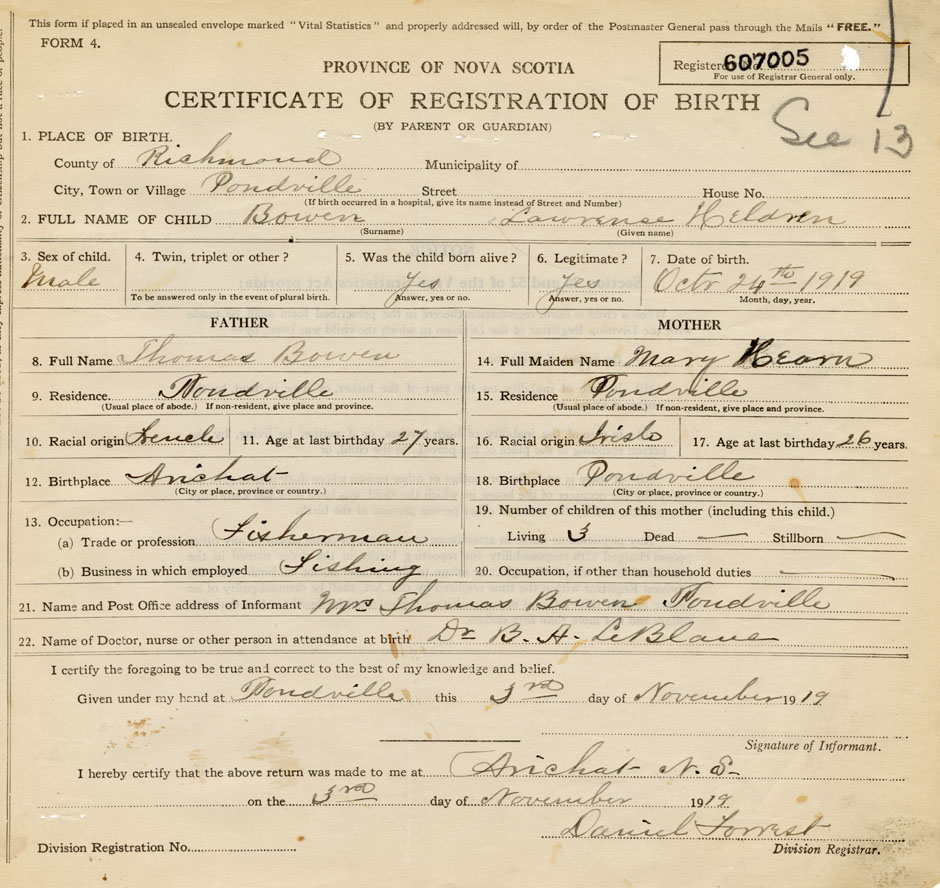 This form if placed in an unsealed envelope marked "Vital Statistics" and properly addressed will, by order of the Postmaster General pass through the Mails "FREE."
FORM 4.
Registered No. 607005
For use of Registrar General only.
PROVINCE OF NOVA SCOTIA
CERTIFICATE OF REGISTRATION OF BIRTH
(BY PARENT OR GUARDIAN)
See 13
1. PLACE OF BIRTH.
County of Richmond Municipality of
City, Town or Village Pondville Street House No.
(If birth occurred in a hospital, give its name instead of Street and Number)
2. FULL NAME OF CHILD Bowen Lawrence Heldren
(Surname) (Given name)
3. Sex of child. 4. Twin, triplet or other? 5. Was the child born alive? 6. Legitimate? 7. Date of birth.
Male Yes Yes Octr 24th 1919
To be answered only in the event of plural birth. Answer, yes or no. Answer, yes or no. Month, day, year.
FATHER MOTHER
8. Full Name Thomas Bowen 14. Full Maiden Name Mary Hearn
9. Residence. Pondville 15. Residence Pondville
(Usual place of abode.) If non-resident, give place and province. (Usual place of abode.) If non-resident, give place and province.
10. Racial origin French 11. Age at last birthday 27 years. 16. Racial origin Irish 17. Age at last birthday 26 years.
12. Birthplace Arichat 18. Birthplace Pondville
(City or place, province or country.) (City or place, province or country.)
13. Occupation:— 19. Number of children of this mother (including this child.)
(a) Trade or profession Fisherman Living 3 Dead — Stillborn —
(b) Business in which employed Fishing 20. Occupation, if other than household duties —
21. Name and Post Office address of Informant Mrs Thomas Bowen Pondville
22. Name of Doctor, nurse or other person in attendance at birth Dr B. A. LeBlanc
I certify the foregoing to be true and correct to the best of my knowledge and belief.
Given under my hand at Pondville this 3rd day of November 1919
Signature of Informant.
I hereby certify that the above return was made to me at Arichat N. S.
on the 3rd day of November 1919
Daniel Forrest
Division Registration No. Division Registrar.